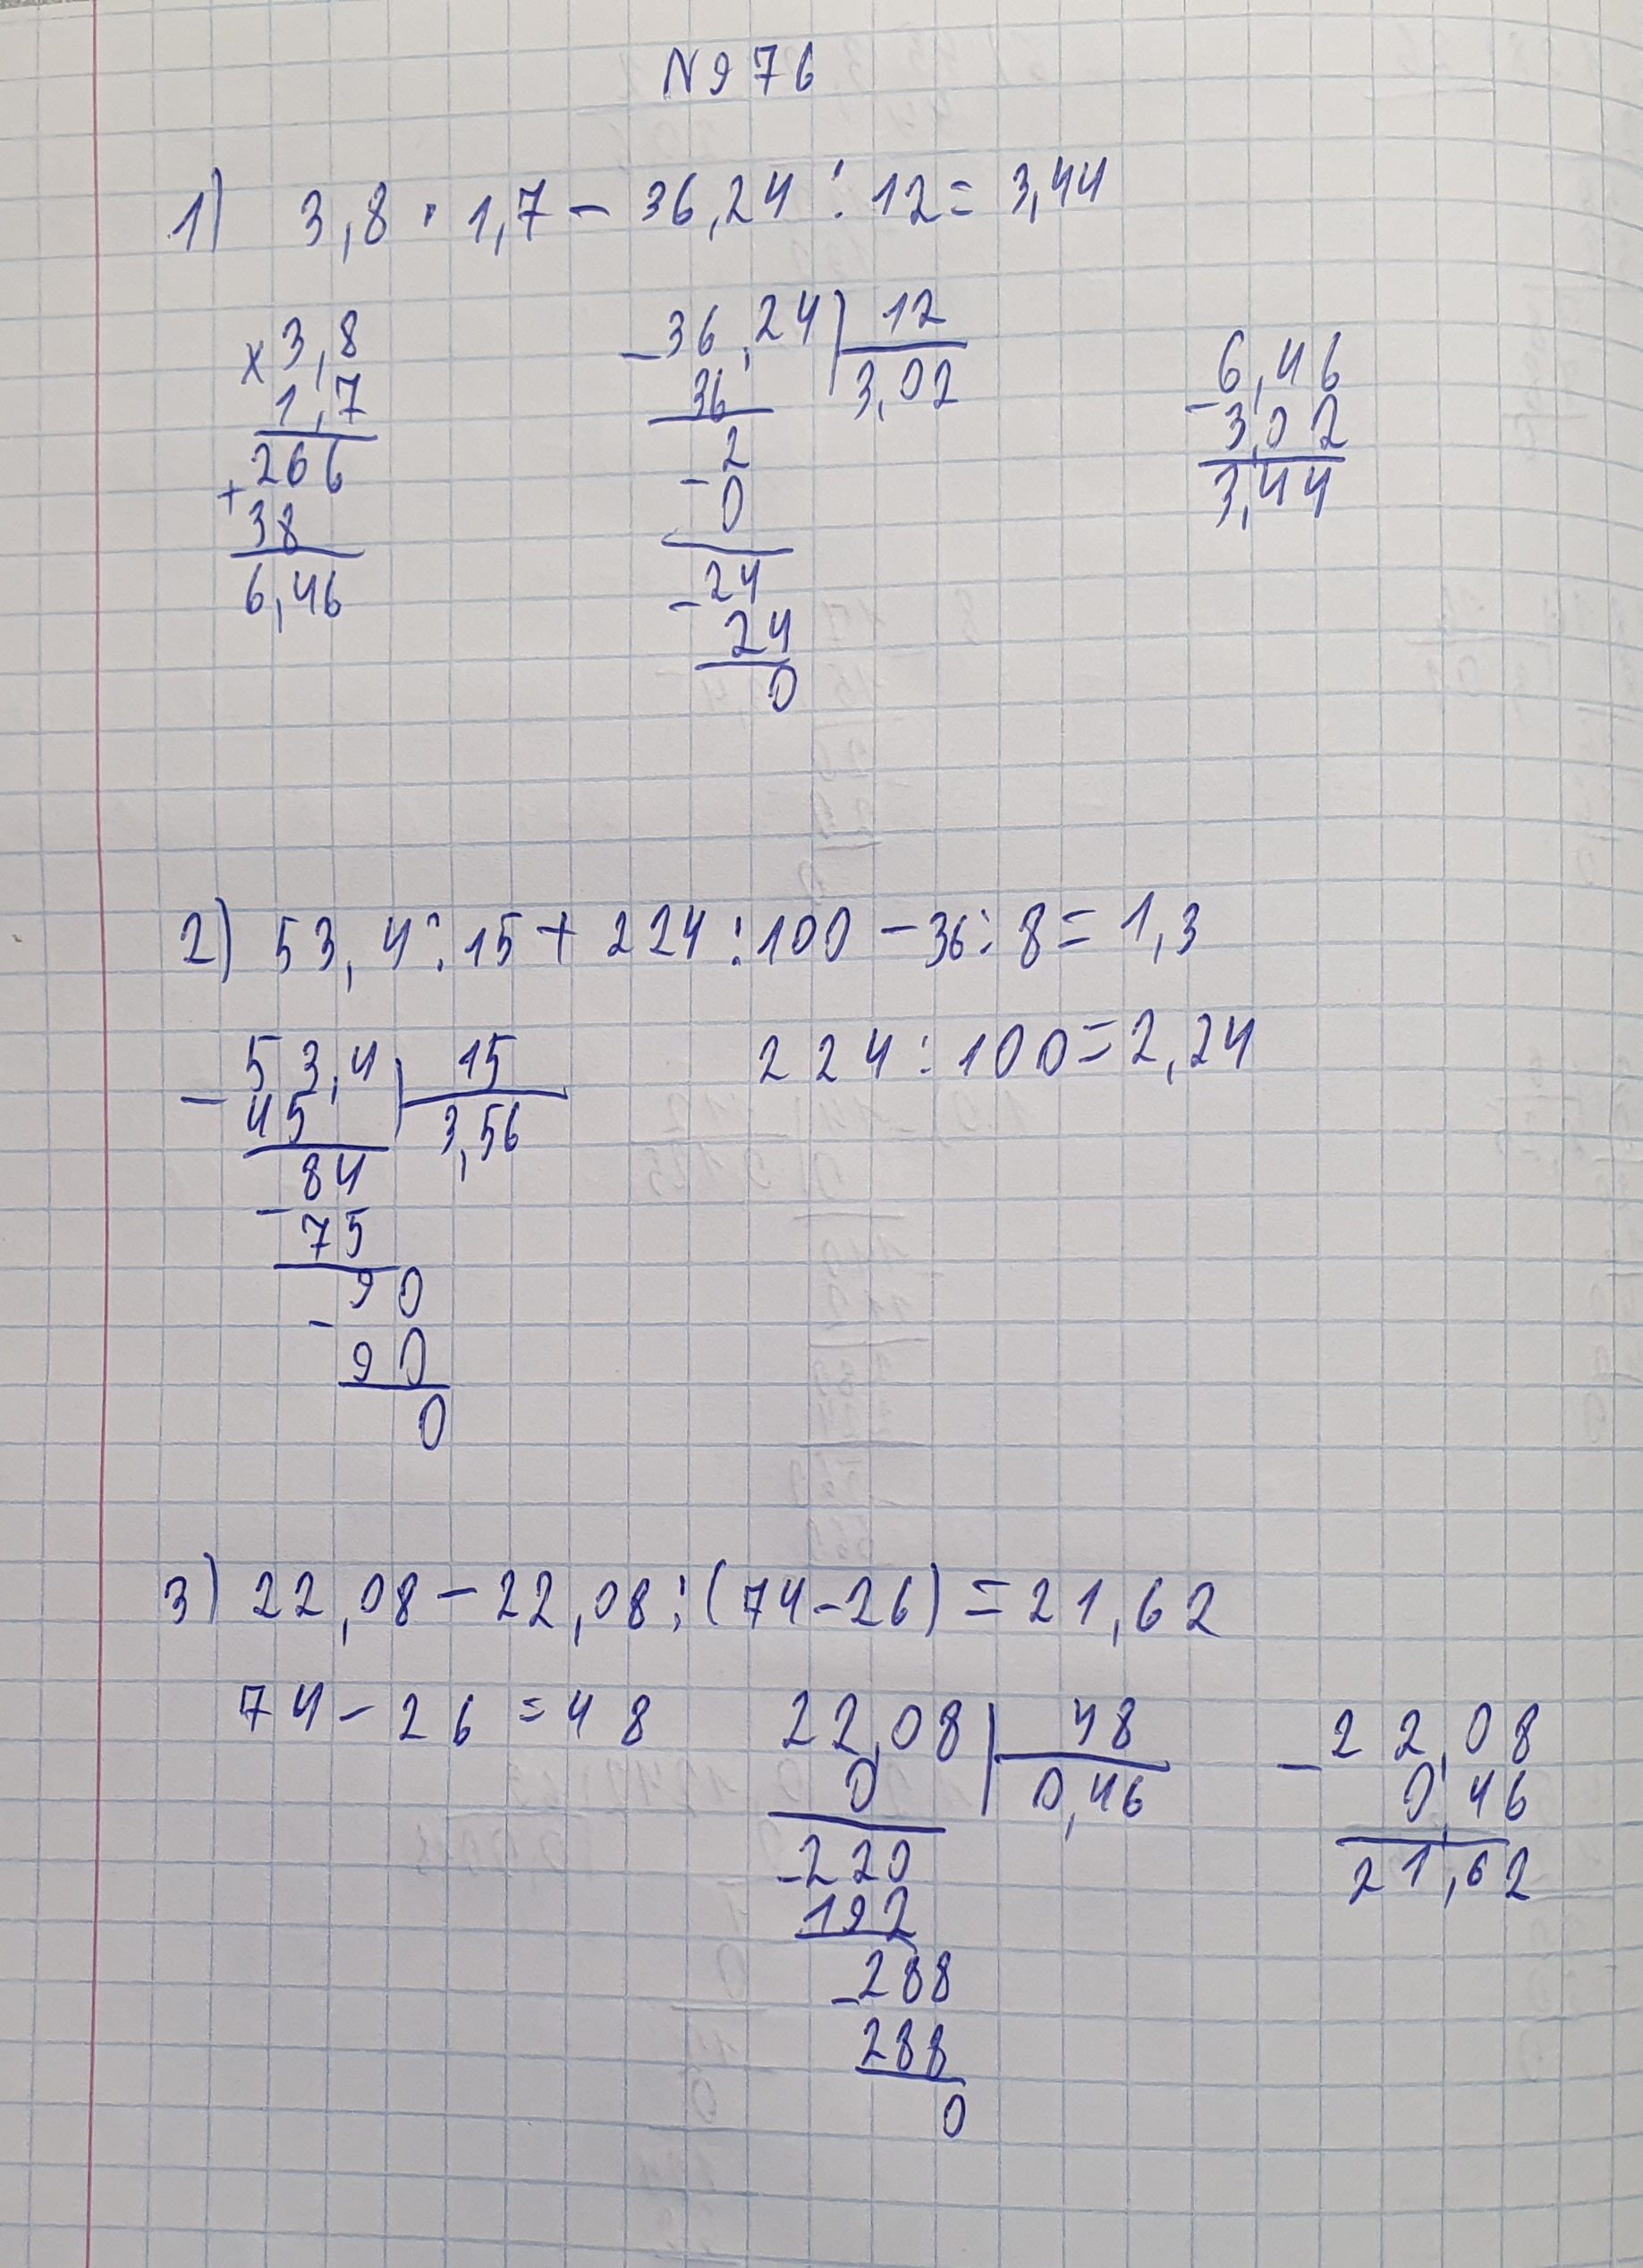 N976
1) 3,8 · 1,7 - 36,24 : 12 = 3,44
x 3,8
1,7
266
+
38
6,46
- 36,24 | 12
36 3,02
2
-
0
- 24
24
0
6,46
-
3,02
3,44
2) 53,4 : 15 + 224 : 100 - 36 : 8 = 1,3
- 53,4 | 15
45 3,56
84
-
75
90
-
90
0
224 : 100 = 2,24
3) 22,08 - 22,08 : (74 - 26) = 21,62
74 - 26 = 48
22,08 | 48
0 0,46
- 220
192
- 288
288
0
- 22,08
0,46
21,62